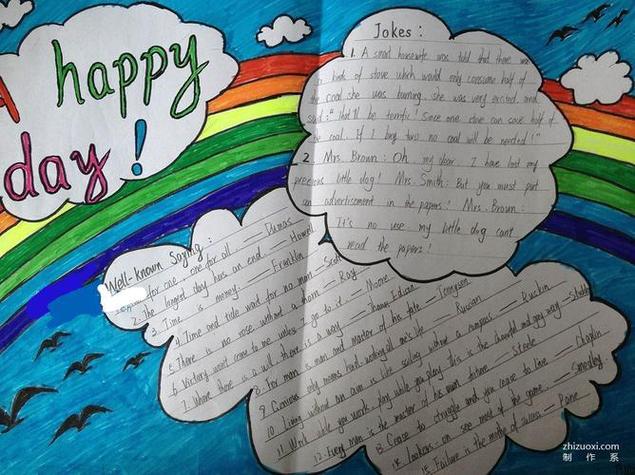 A happy
day!
Jokes:
1. A smart housewife was told that there was
kind of stove which would only consume half of
the coal she was burning. She was very excited, and
said: "That'll be terrific! Since one stove can save half of
the coal, if I buy two no coal will be needed!"
2. Mrs. Brown: Oh my dear, I have lost my
precious little dog! Mrs. Smith: But you must put
an advertisement in the papers! Mrs. Brown:
It's no use, my little dog cant
read the papers!
Well-known Saying:
for one, one for all. — Dumas
2. The longest day has an end. — Howell
3. Time is money. — Franklin
4. Time and tide wait for no man — Scott
5. There is no rose without a thorn — Ray
6. Victory won't come to me unless go to it. — Moore
7. Where there is a will, there is a way — Edison
8. For man is man and master of his fate. — Tennyson
9. Genius only means hard-working all one's life — Russian
10. Living without an aim is like sailing without a compass. — Ruskin
11. Work while you work, play while you play, this is the cheerful and gay way —
12. Every man is the master of his own fortune. — Steele
13. Cease to struggle and you cease to live. —
14. Lookers-on see most of the game. — Smedley
15. Failure is the mother of success — Paine
zhizuoxi.com
制作系